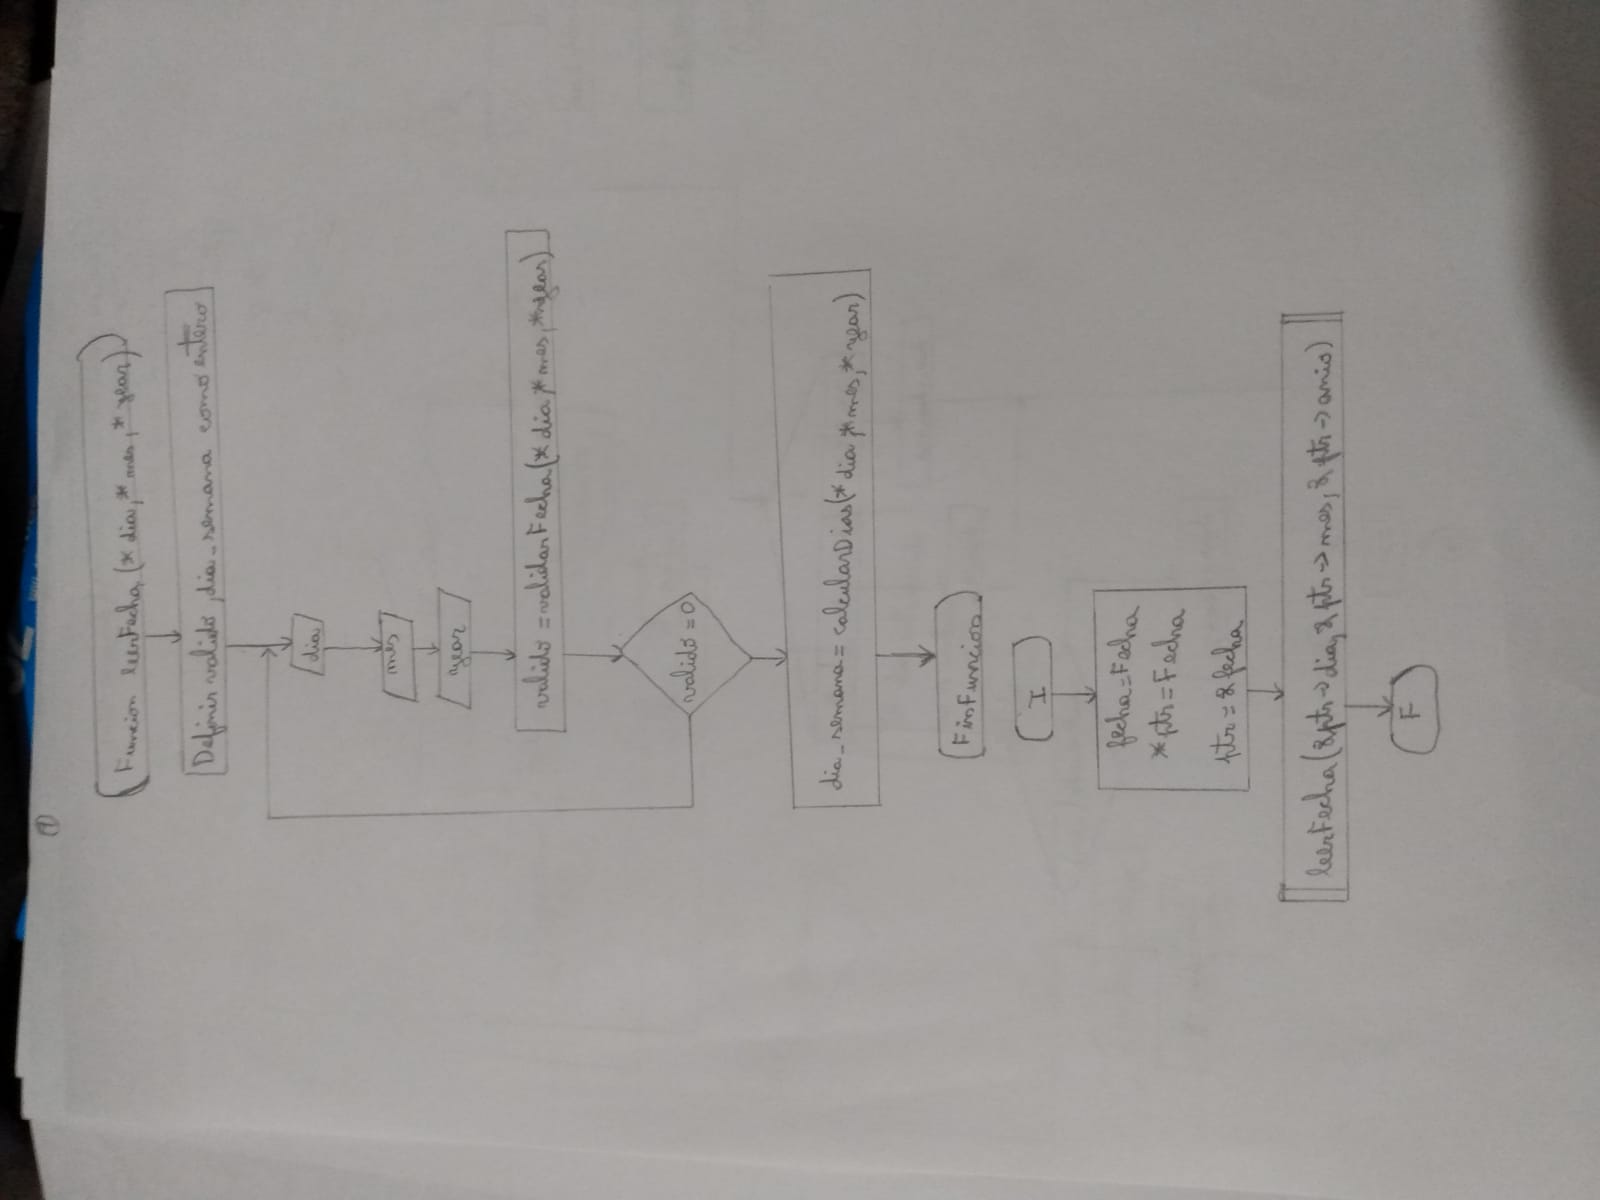 1
Funcion leerFecha (* dia, * mes, * year)
Definir valido, dia_semana como entero
dia
mes
year
valido = validarFecha(* dia * mes, * year)
valido = 0
dia_semana = calcularDias(* dia, * mes, * year)
FinFuncion
I
fecha = Fecha
*ptr = Fecha
ptr = & fecha
leerFecha (&ptr -> dia, & ptr -> mes, & ptr -> anio)
F